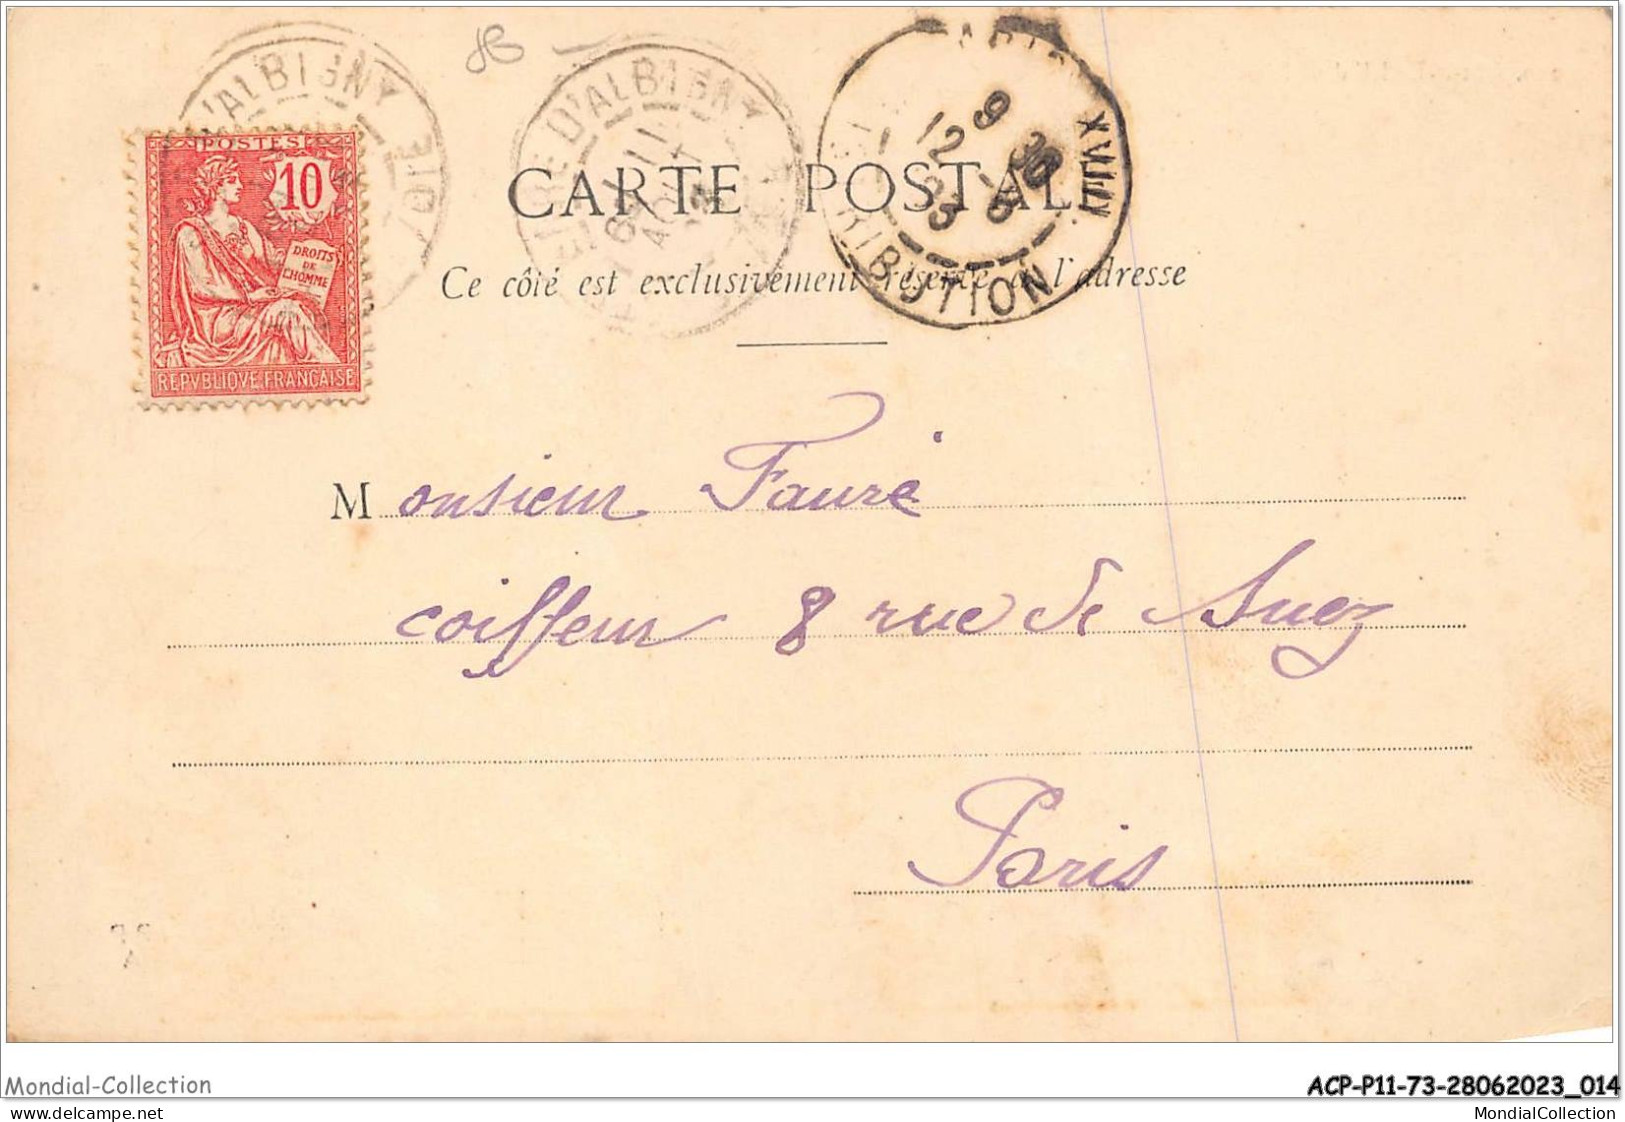 D'ALBIGNY
POSTES
10
DROITS
DE
L'HOMME
REPVBLIQVE FRANÇAISE
D'ALBIGNY
XVIII
9 30
12
DISTRIBUTION
CARTE POSTALE
Ce côté est exclusivement réservé à l'adresse
Monsieur Fauré
coiffeur 8 rue de Suez
Paris
Mondial-Collection
ACP-P11-73-28062023_014
delcampe.net
MondialCollection